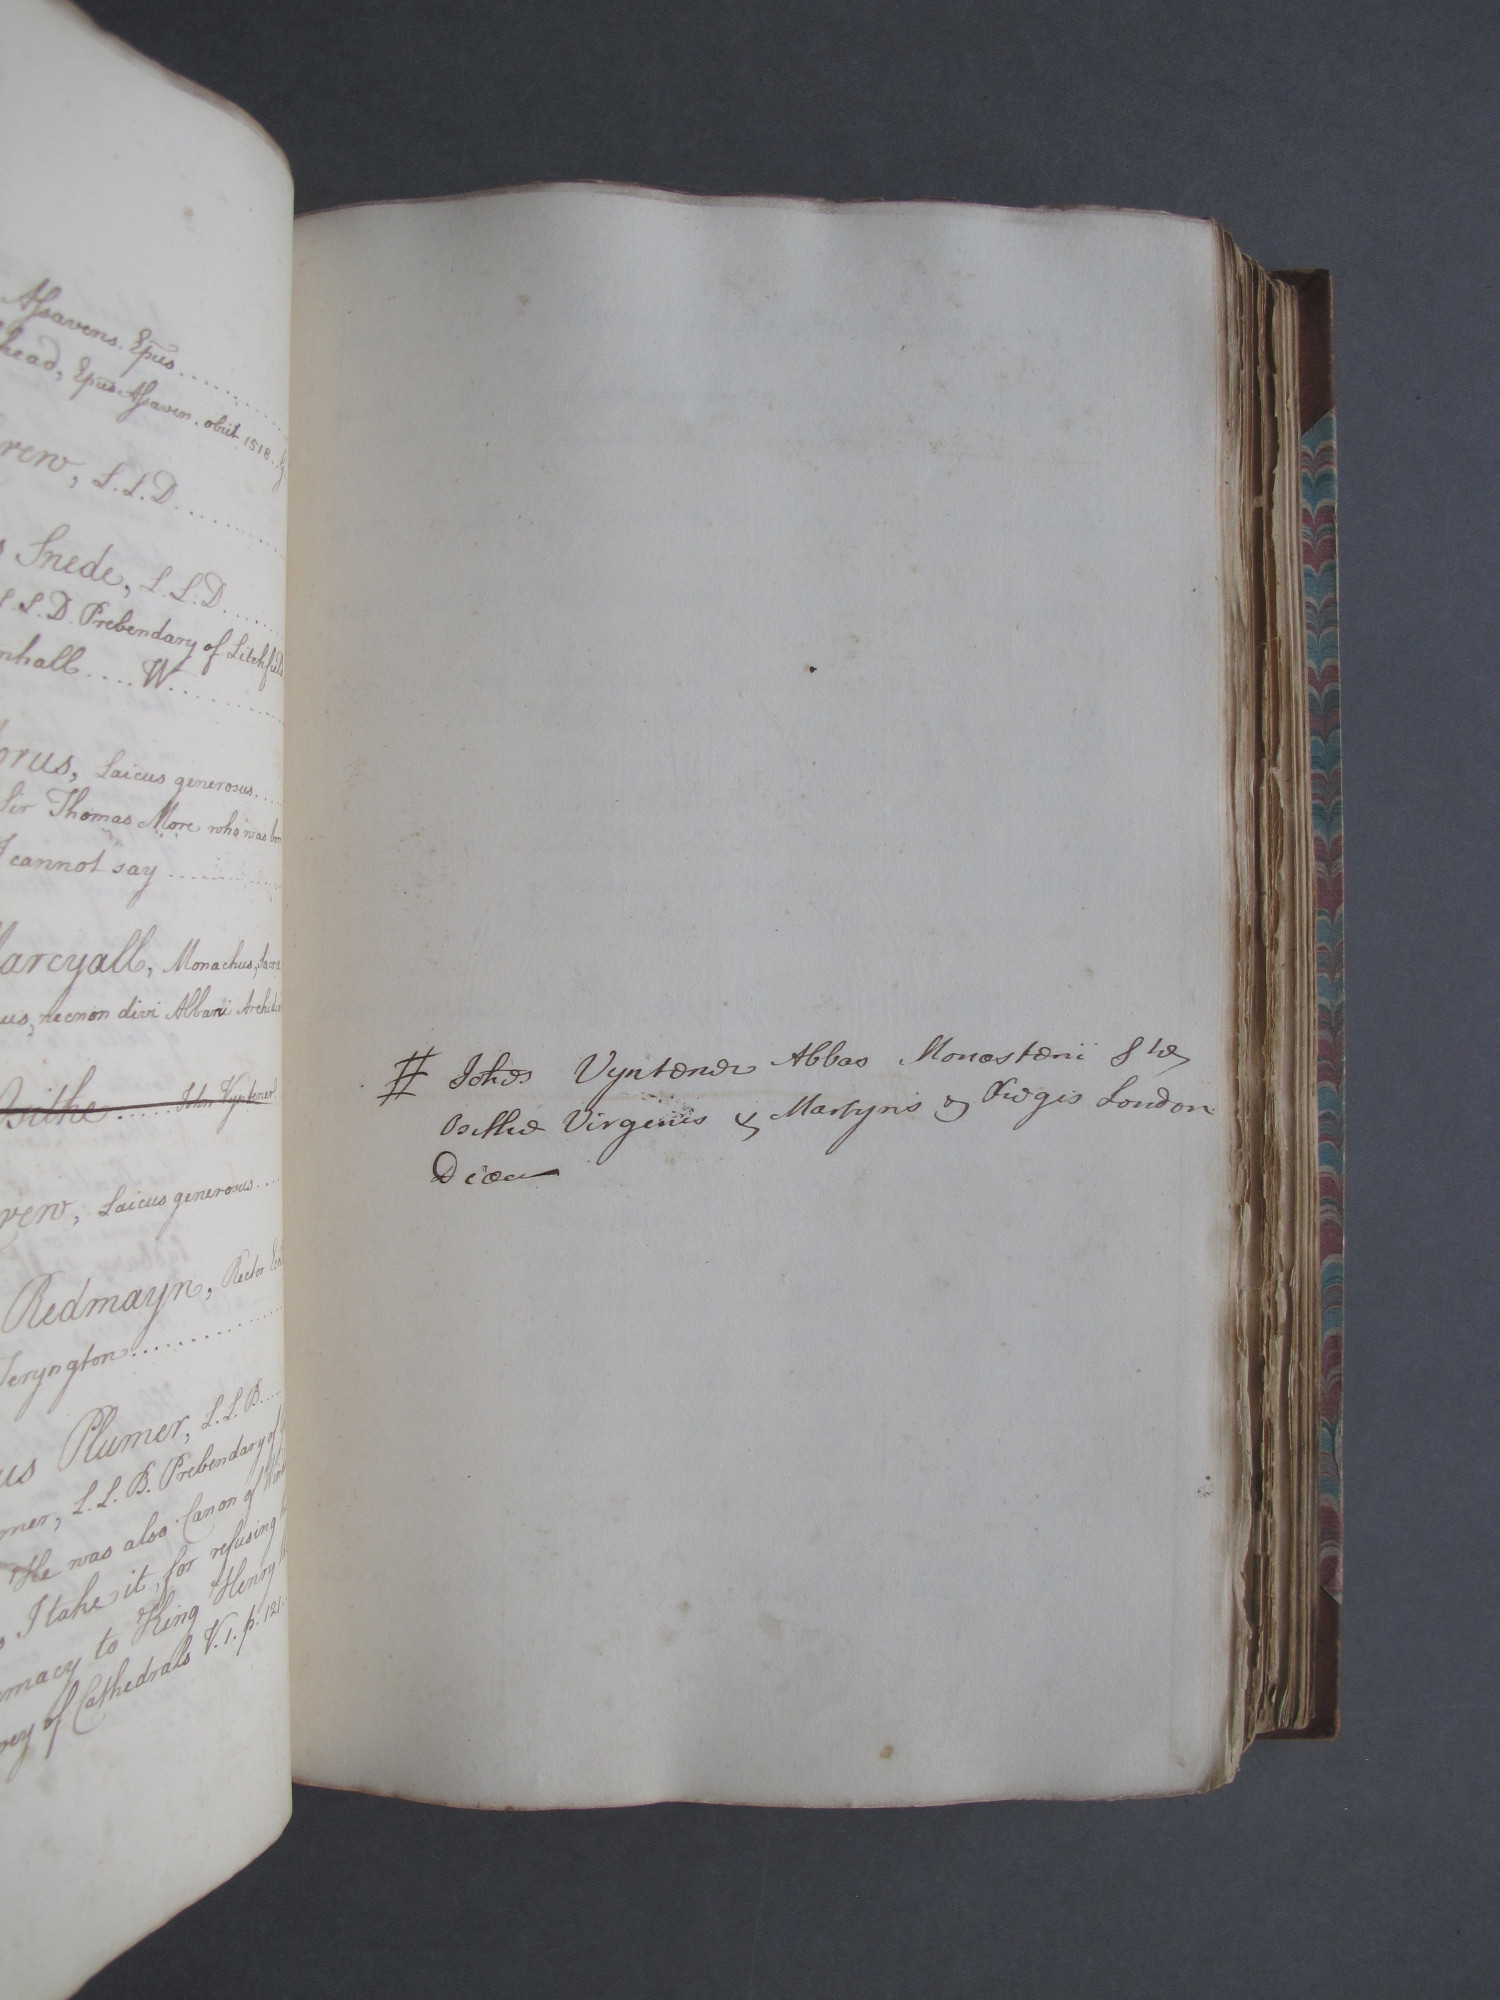 Assavens. Epus
head, Epus Assaven. obiit 1518.
rew, L.L.D
Snede, L.L.D
L.L.D. Prebendary of Litchfield
nhall .... W
orus, Laicus generosus
Sir Thomas More who was bor
I cannot say
arcyall, Monachus, Sacra
us, necnon divi Albani Archidia
Osithe ..... John Vyntener
rew, Laicus generosus
Redmayn, Rector Eccl
Teryngton
us Plumer, L.L.B.
mer, L.L.B. Prebendary of
He was also Canon of
I take it, for refusing
macy to King Henry
vey of Cathedrals V. 1. p. 121.
# Johes Vyntener Abbas Monasterii Ste
Osithe Virginis & Martyris & Regis London
Dioc